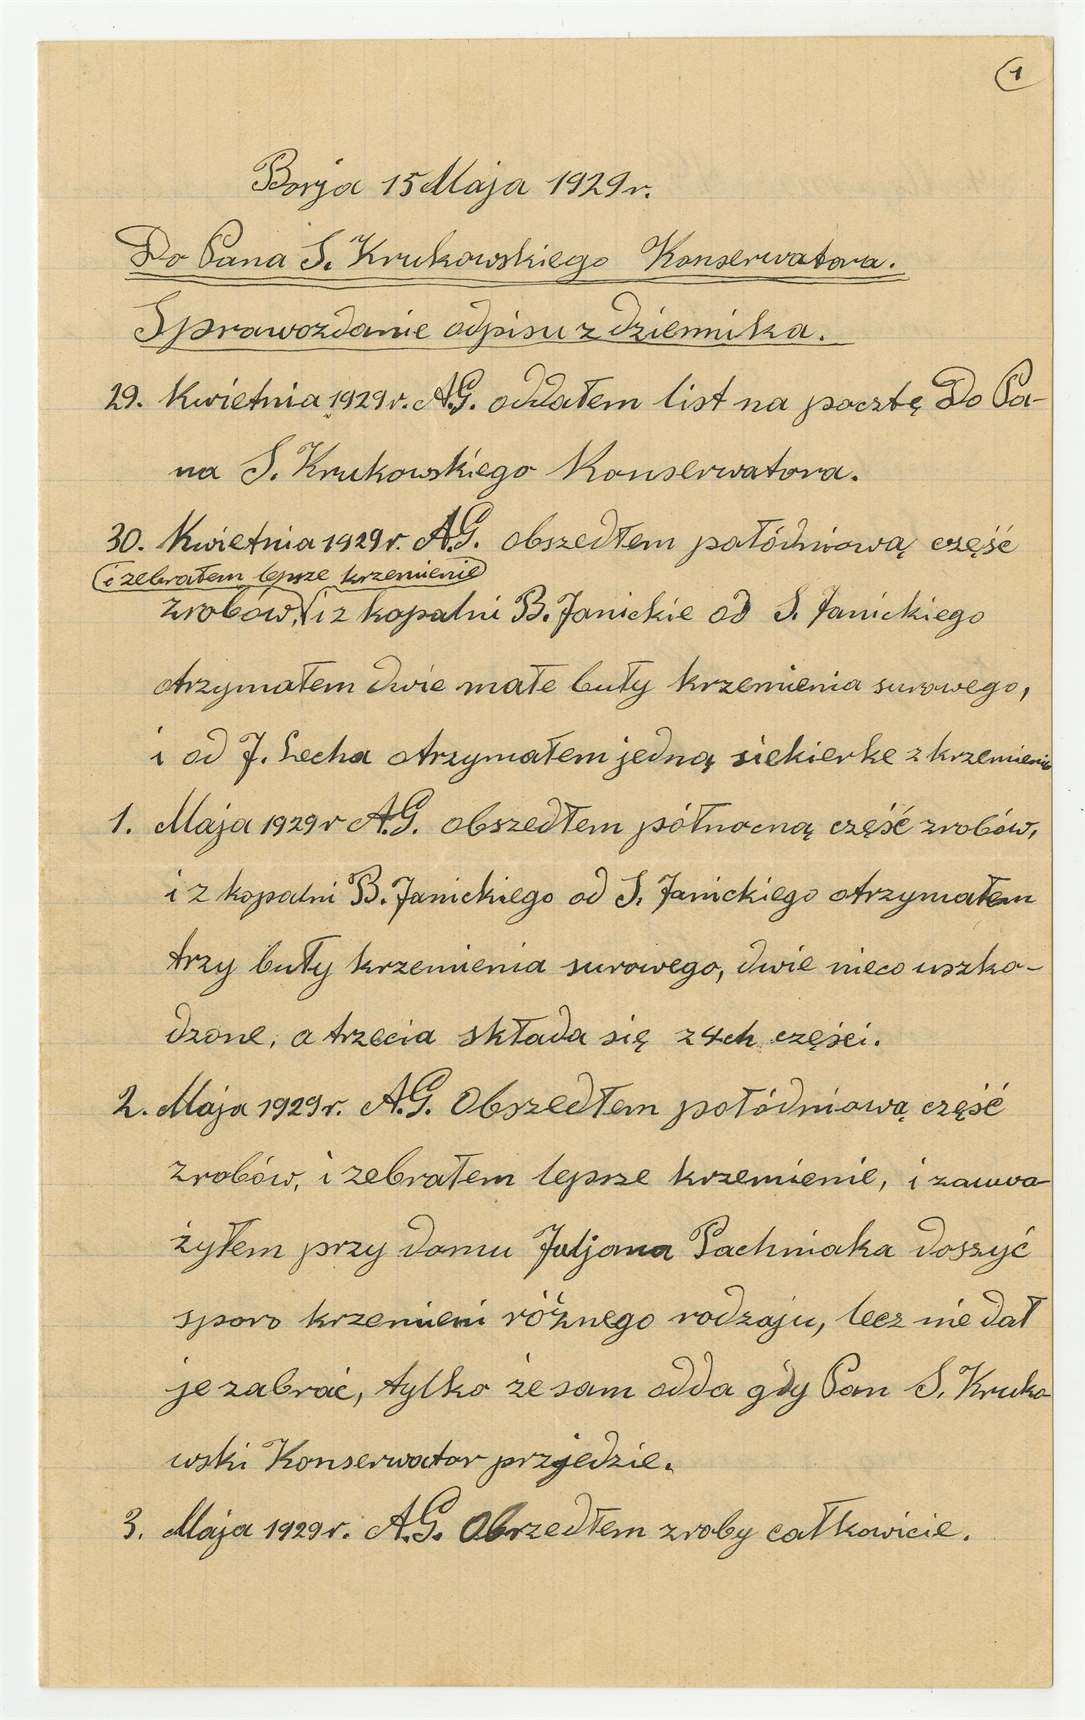 1
Borja 15 Maja 1929 r.
Do Pana S. Krukowskiego Konserwatora.
Sprawozdanie odpisu z dziennika.
29. Kwietnia 1929 r. A.G. oddałem list na pocztę Do Pa-
na S. Krukowskiego Konserwatora.
30. Kwietnia 1929 r. A.G. obszedłem połódniową część
i zebrałem lepsze krzemienie
zrobów, i z kopalni B. Janickie od S. Janickiego
otrzymałem dwie małe buły krzemienia surowego,
i od J. Lecha otrzymałem jedną siekierke z krzemienia
1. Maja 1929 r A.G. obszedłem północną część zrobów,
i z kopalni B. Janickiego od S. Janickiego otrzymałem
trzy buły krzemienia surowego, dwie nieco uszko-
dzone, a trzecia składa się z 4ch części.
2. Maja 1929 r. A.G. Obszedłem połódniową część
zrobów, i zebrałem lepsze krzemienie, i zauwa
żyłem przy domu Juljana Pachniaka doszyć
sporo krzemieni różnego rodzaju, lecz nie dał
je zabrać, tylko że sam odda gdy Pan S. Kruko
wski Konserwator przyjedzie.
3. Maja 1929 r. A.G. Obrzedłem zroby całkowicie.